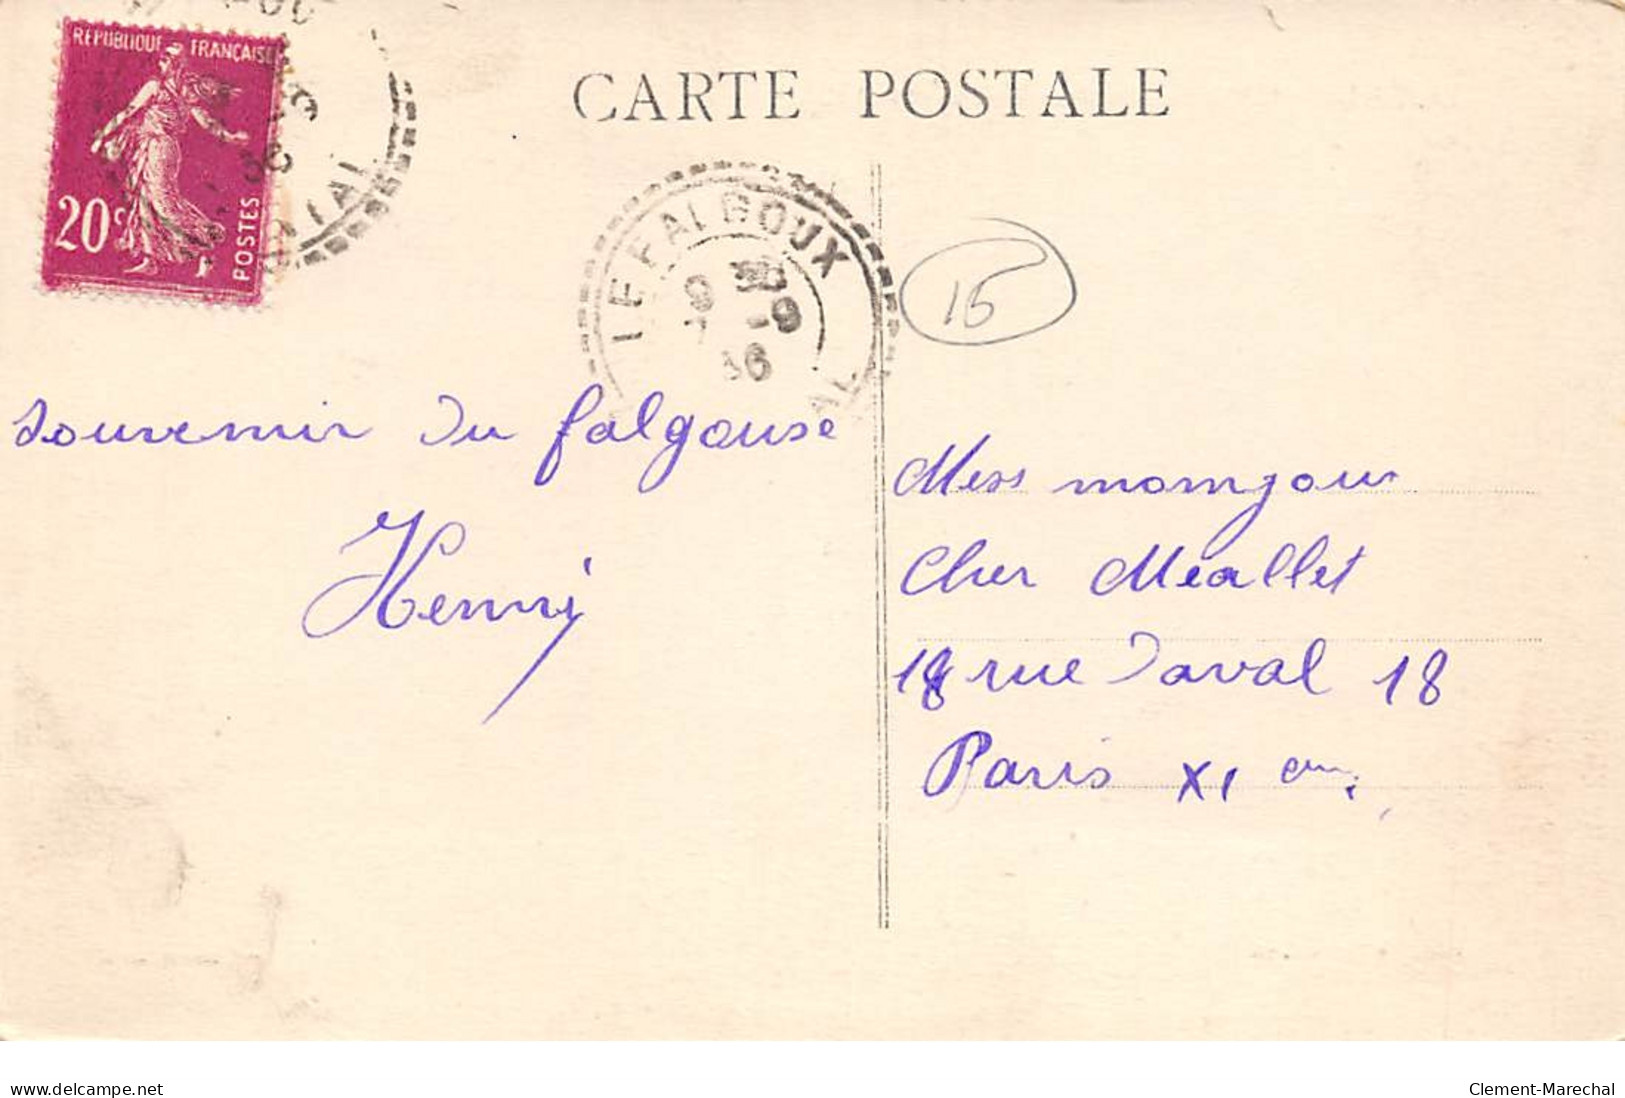 RÉPUBLIQUE FRANÇAISE
20c
POSTES
CARTE POSTALE
LE FALGOUX
9 30
7 -9
36
15
souvenir Du falgouse
Henri
Mess momjour
Cher Meallet
18 rue Daval 18
Paris XI em
www.delcampe.net
Clement-Marechal